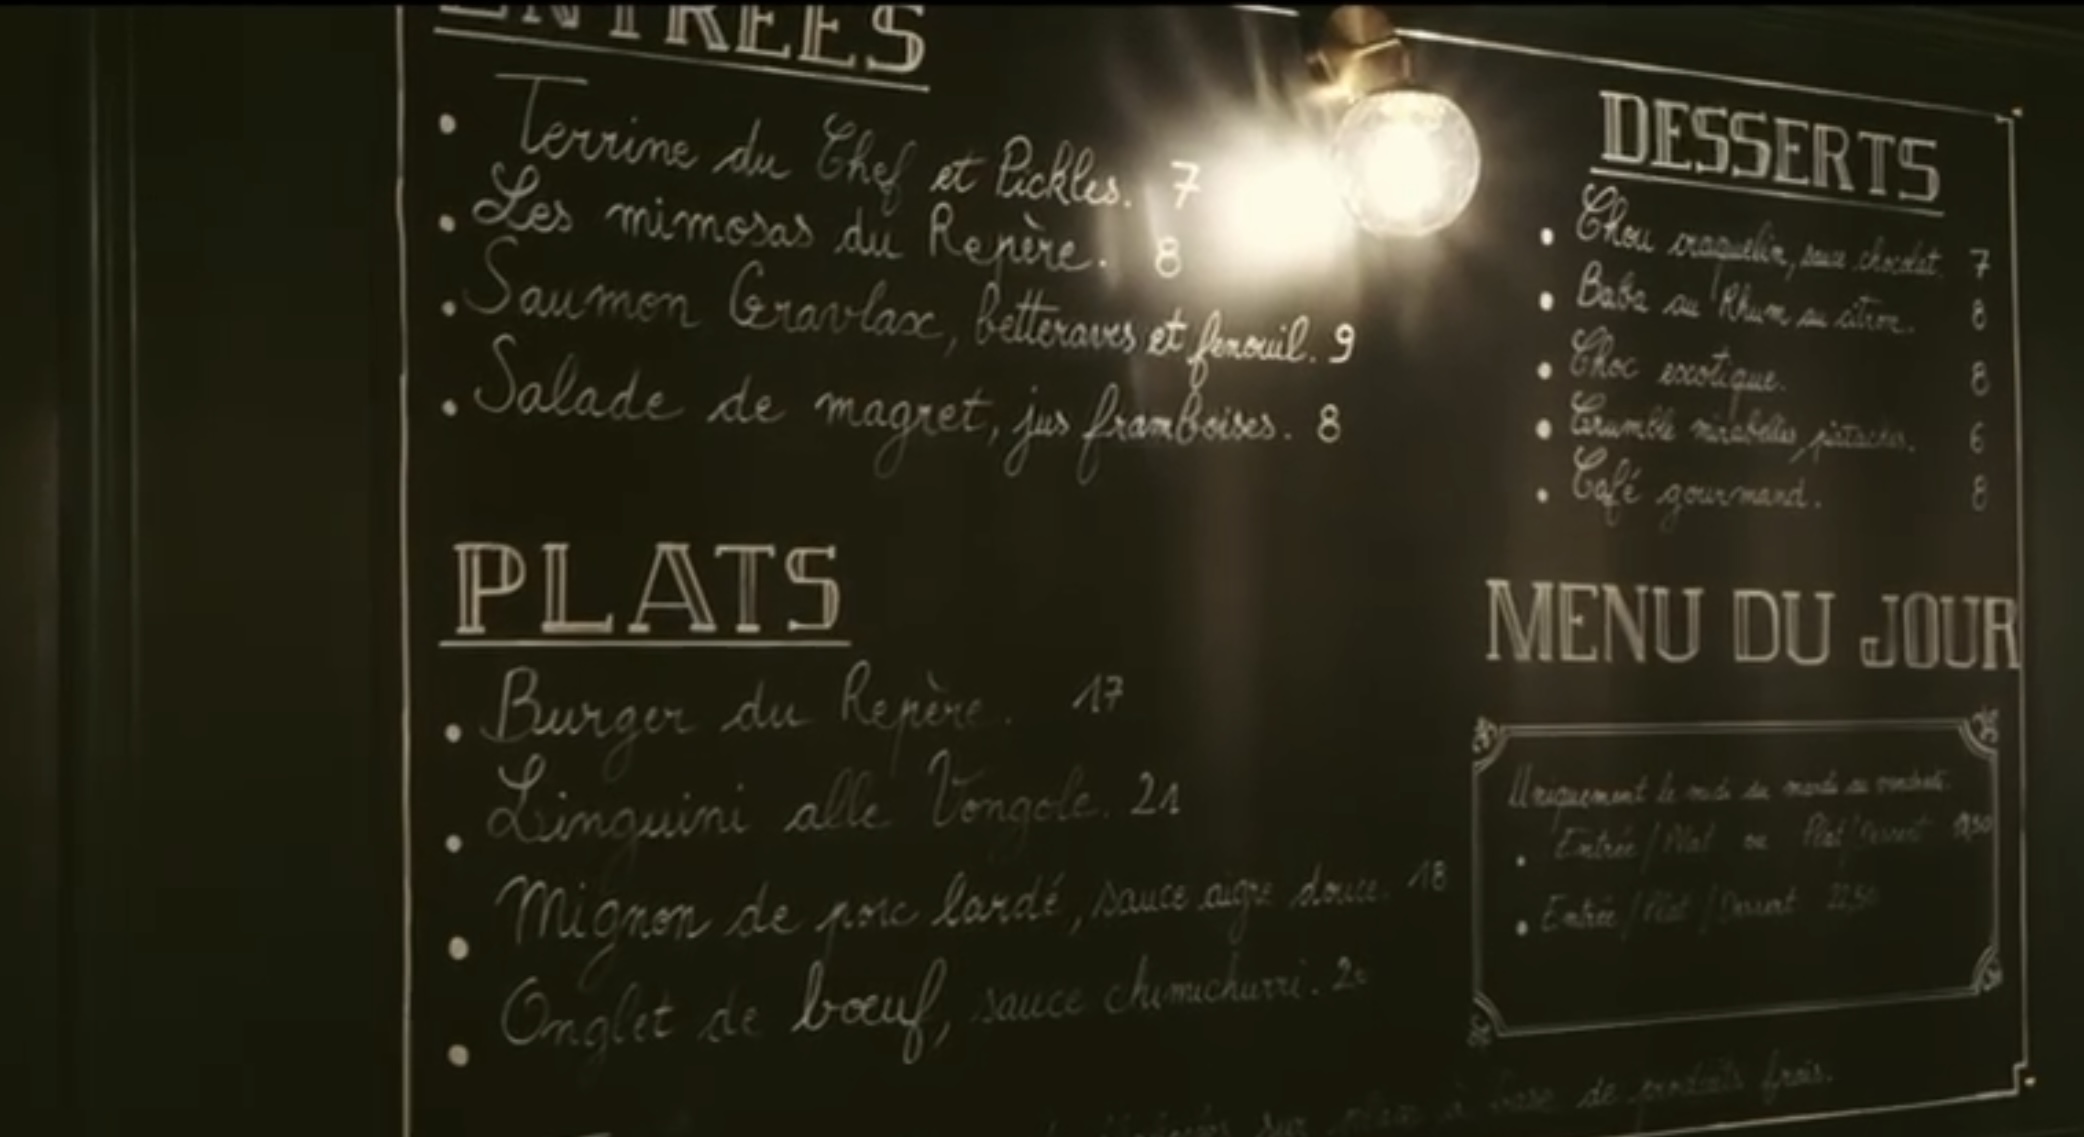 ENTRÉES
• Terrine du Chef et Pickles. 7
• Les mimosas du Repère. 8
• Saumon Gravlax, betteraves et fenouil. 9
• Salade de magret, jus framboises. 8
PLATS
• Burger du Repère. 17
• Linguini alle Vongole. 21
• Mignon de porc lardé, sauce aigre douce. 18
• Onglet de bœuf, sauce chimichurri.
DESSERTS
• Chou craquelin, sauce chocolat. 7
• Baba au Rhum au citron. 8
• Choc exotique. 8
• Crumble mirabelles pistaches. 6
• Café gourmand. 8
MENU DU JOUR
Uniquement le midi du mardi au vendredi.
• Entrée / Plat ou Plat / Dessert
• Entrée / Plat / Dessert 22,50
sur place à base de produits frais.